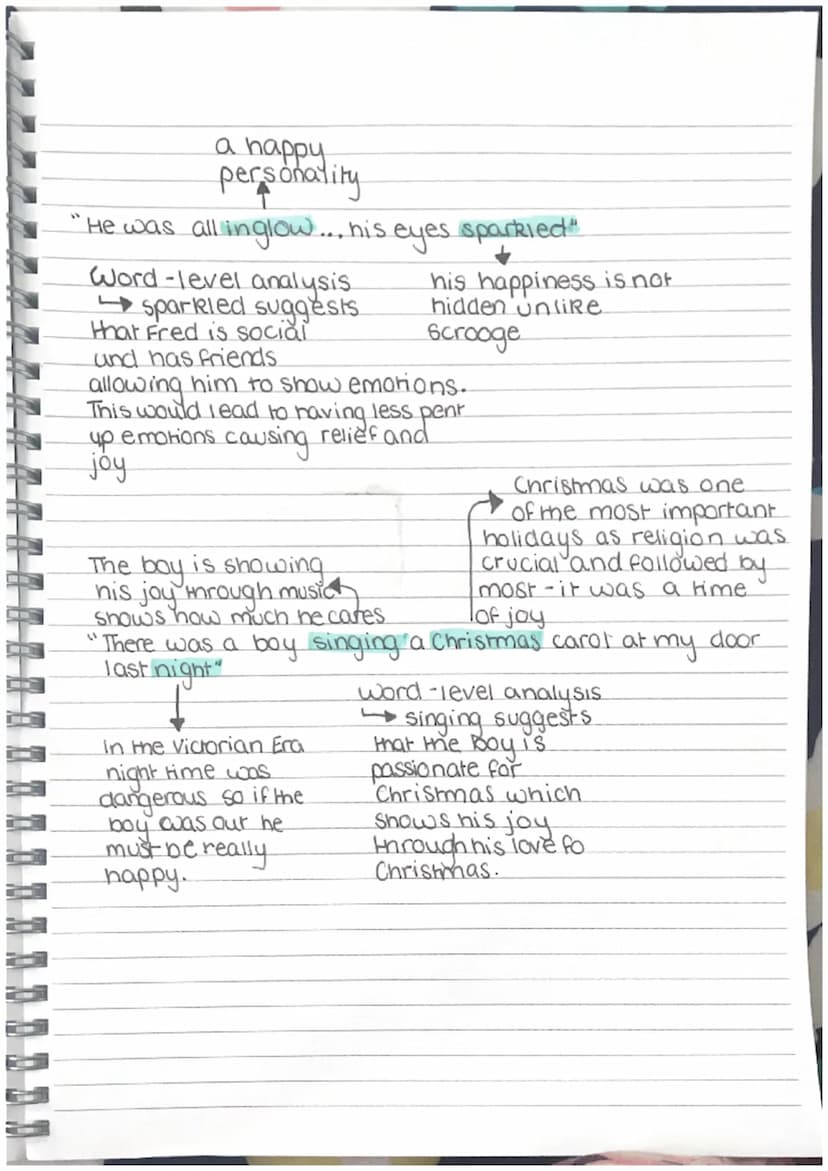 a happy
personality
"He was all inglow... his eyes sparkled"
Word-level analysis
↳ sparkled suggests
that Fred is social
und has friends
allowing him to show emotions.
This would lead to having less pent
up emotions causing relief and
joy
his happiness is not
hidden unlike
Scrooge
Christmas was one
of the most important
holidays as religion was
crucial and followed by
most - it was a time
of joy
The boy is showing
his joy through music
shows how much he cares
"There was a boy singing a Christmas carol at my door
last night"
In the Victorian Era
night time was
dangerous so if the
boy was out he
must be really
happy.
Word-level analysis
↳ singing suggests
that the Boy is
passionate for
Christmas which
shows his joy
through his love fo
Christmas.